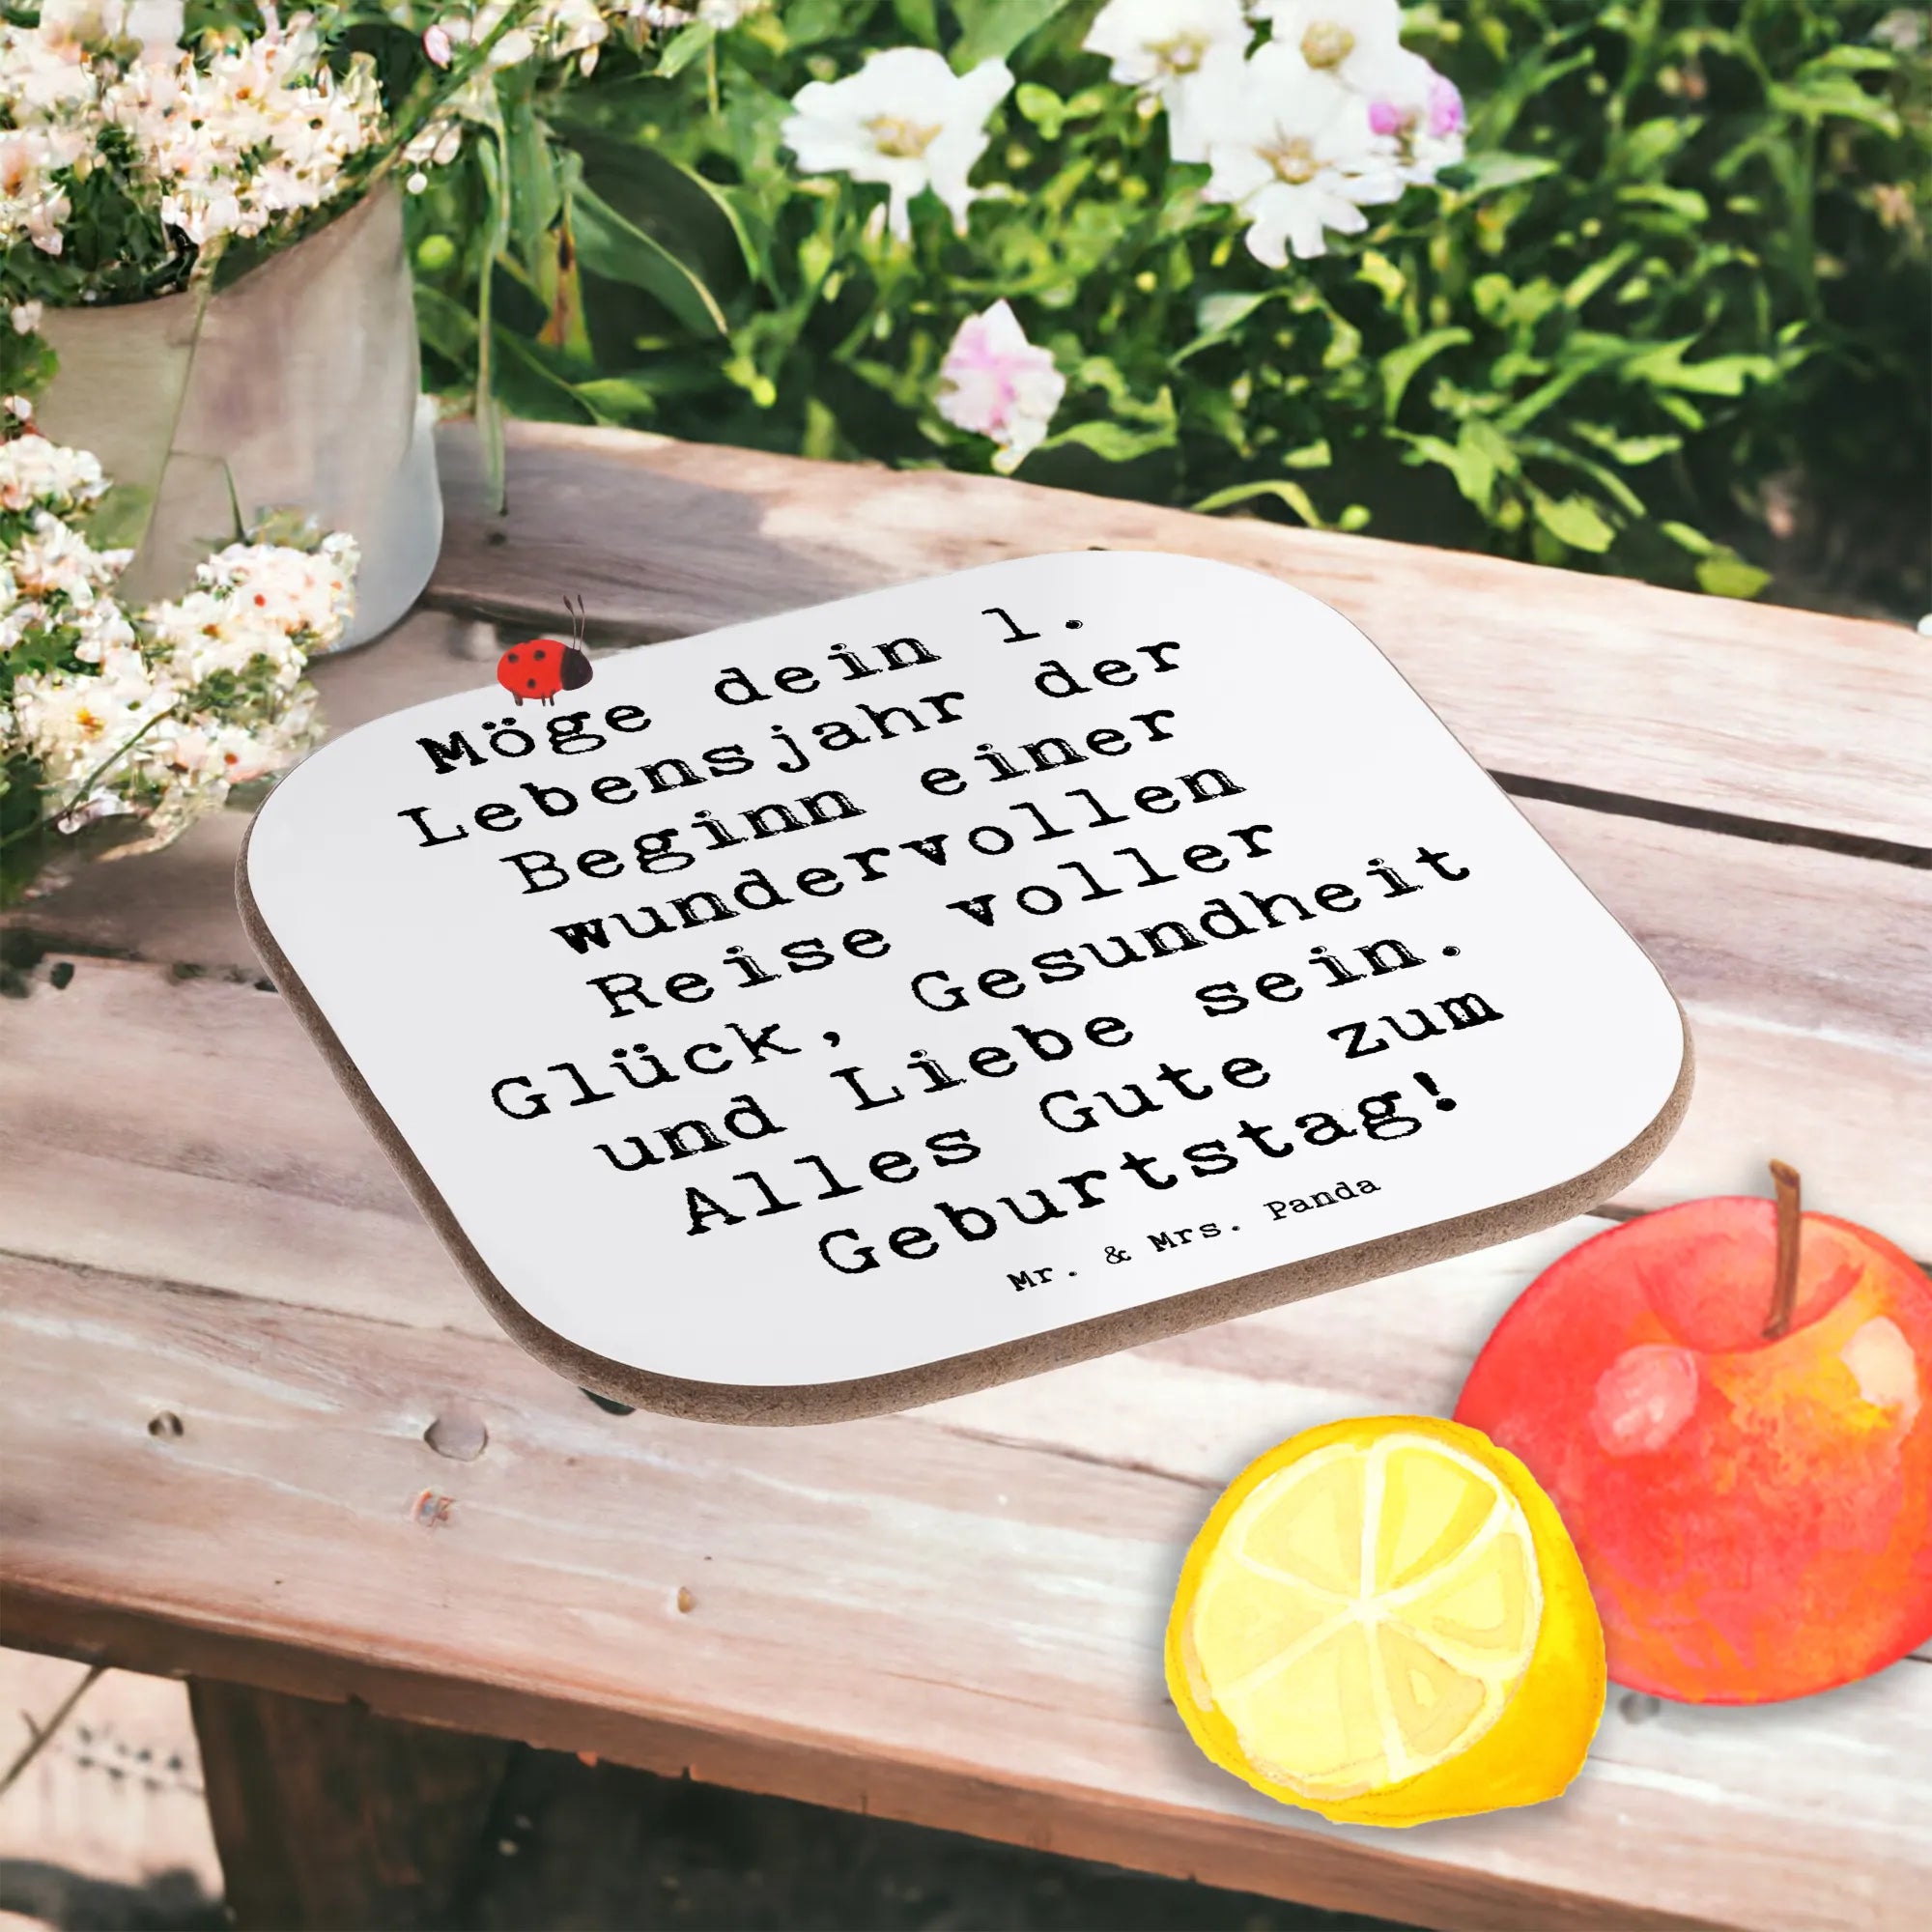 Möge dein 1.
Lebensjahr der
Beginn einer
wundervollen
Reise voller
Glück, Gesundheit
und Liebe sein.
Alles Gute zum
Geburtstag!
Mr. & Mrs. Panda